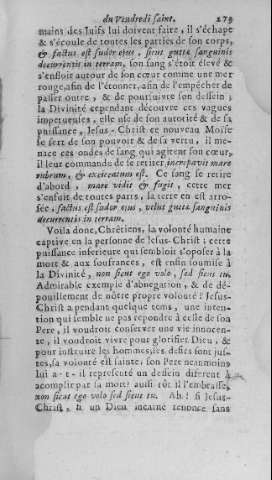 du Vendredi saint. 279
mains des Juifs lui doivent faire, il s'échape
& s'écoule de toutes les parties de son corps,
& factus est sudor ejus, sicut guttæ sanguinis
decurrentis in terram, son sang s'étoit élevé &
s'enfloit autour de son cœur comme une mer
rouge, afin de l'étonner, afin de l'empêcher de
passer outre, & de poursuivre son dessein ;
la Divinité cependant découvre ces vagues
impetueuses, elle use de son autorité & de sa
puissance, Jesus-Christ ce nouveau Moïse
se sert de son pouvoir & de sa vertu, il me-
nace ces ondes de sang qui agitent son cœur,
il leur commande de se retirer increpavit mare
rubrum, & exsiccatum est. Ce sang se retire
d'abord, mare vidit & fugit, cette mer
s'enfuit de toutes parts, la terre en est arro-
sée, factus est sudor ejus, velut guttæ sanguinis
decurrentis in terram.
Voila donc, Chrêtiens, la volonté humaine
captive en la personne de Jesus-Christ ; cette
puissance inferieure qui sembloit s'oposer à la
mort & aux souffrances, est enfin soumise à
la Divinité, non sicut ego volo, sed sicut tu.
Admirable exemple d'abnegation, & de dé-
poüillement de nôtre propre volonté ! Jesus-
Christ a pendant quelque tems, une inten-
tion qui semble ne pas repondre à celle de son
Pere, il voudroit conserver une vie innocen-
te, il voudroit vivre pour glorifier Dieu, &
pour instruire les hommes, ses desirs sont jus-
tes, sa volonté est sainte, son Pere neanmoins
lui a-t-il representé un dessein diferent à
acomplir par sa mort ? aussi-tôt il l'embrasse,
non sicut ego volo sed sicut tu. Ah ! si Jesus-
Christ, si un Dieu incarné renonce sans